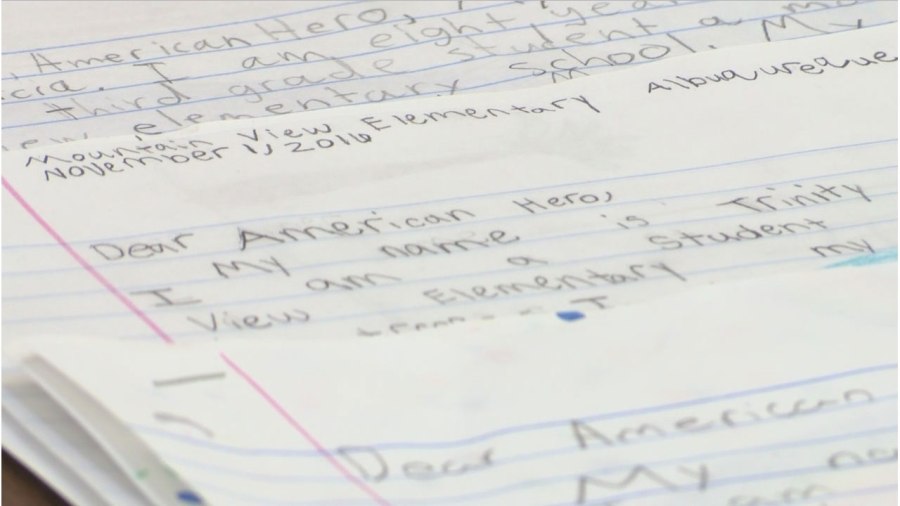 American Hero,
I am eight
third grade student a
elementary School. My
Mountain View Elementary Albuquerque
November 1, 2016
Dear American Hero,
My name is Trinity
I am a Student
View Elementary my
I
Dear American
My
am